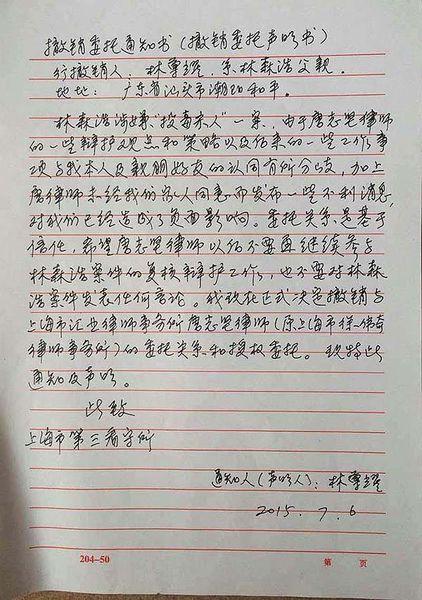 撤销委托通知书（撤销委托声明书）
行撤销人：林尊耀，系林森浩父亲。
地址：广东省汕头市潮阳和平。
林森浩涉嫌“投毒杀人”一案，由于唐志坚律师
的一些辩护观点和策略以及后来的一些工作事
项与我本人及亲朋好友的认同有所分歧，加上
唐律师未经我们家人同意而发布一些不利消息，
对我们已经造成了负面影响。委托关系是基于
信任，希望唐志坚律师以后不要再继续参与
林森浩案件的复核辩护工作，也不要对林森
浩案件发表任何言论。我现在正式决定撤销与
上海市汇业律师事务所唐志坚律师（原上海市徐伟奇
律师事务所）的委托关系和授权委托。现特此
通知及声明。
此致
上海市第三看守所
通知人（声明人）：林尊耀
2015.7.6
204-50
第 页